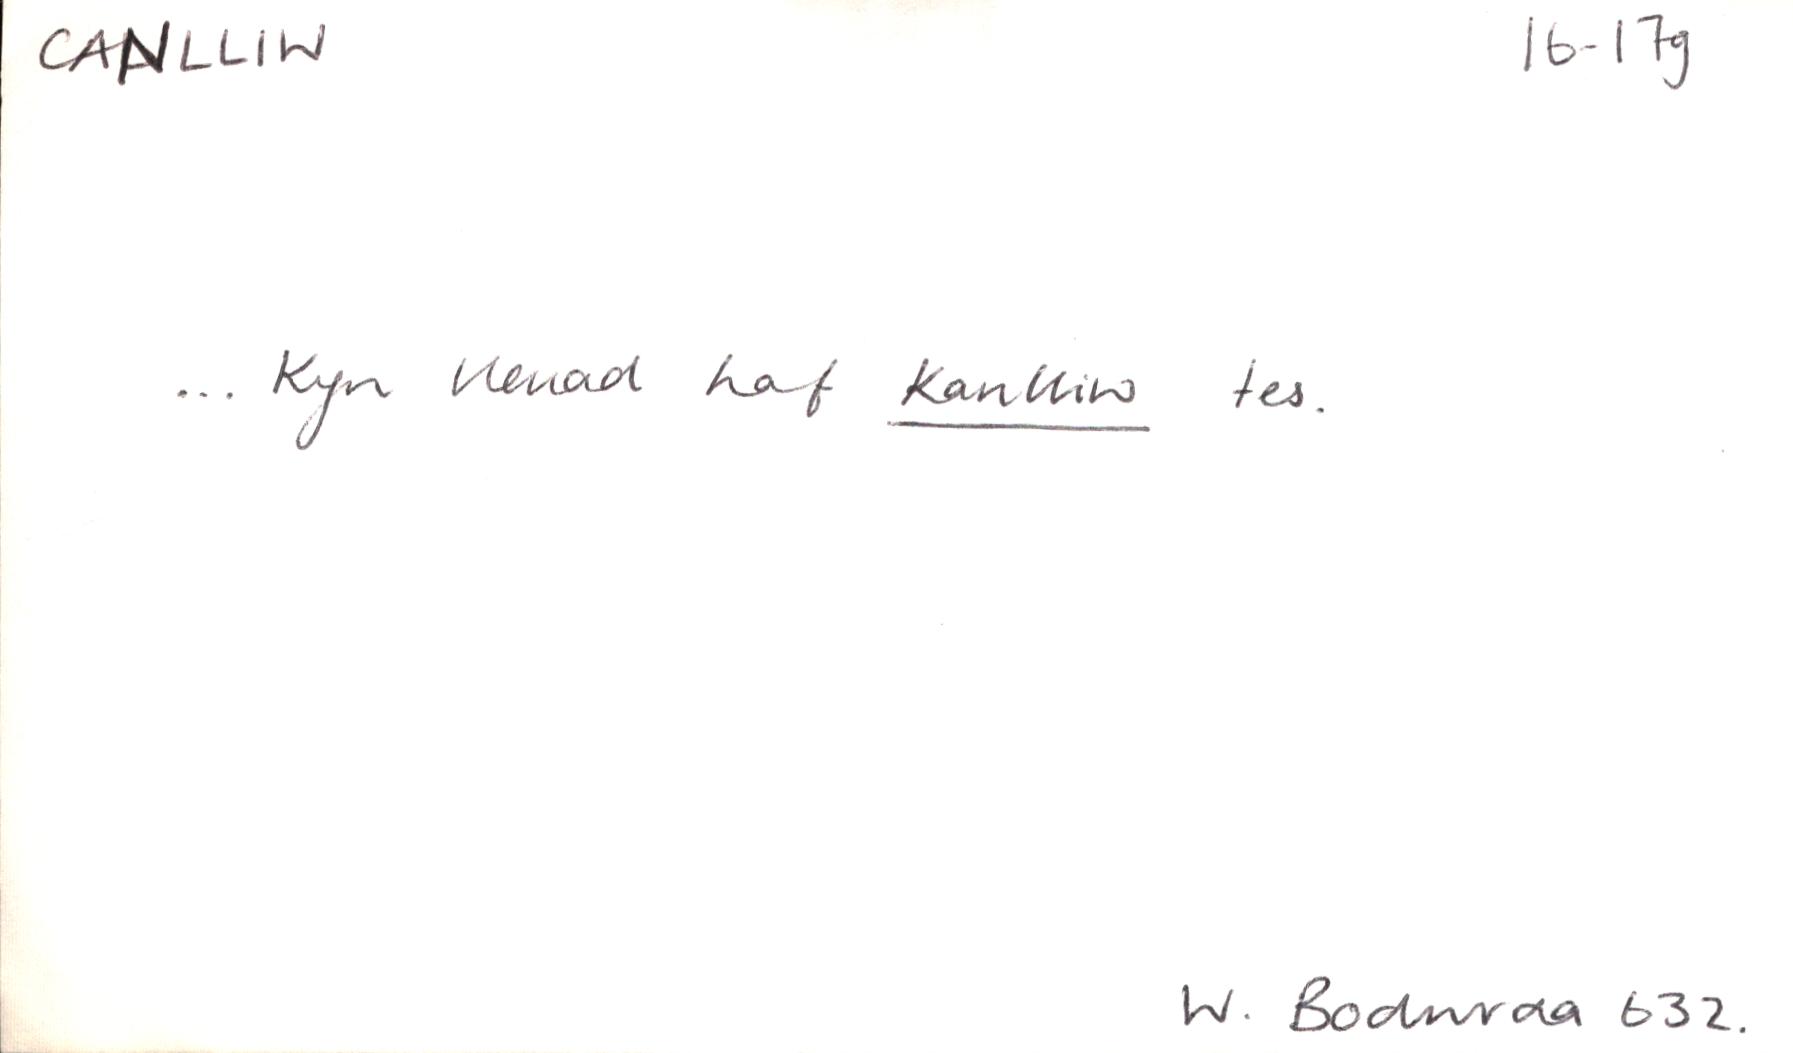 CANLLIW 16-17g
... Kyn lleuad haf Kanlliw tes.
W. Bodwrda 632.